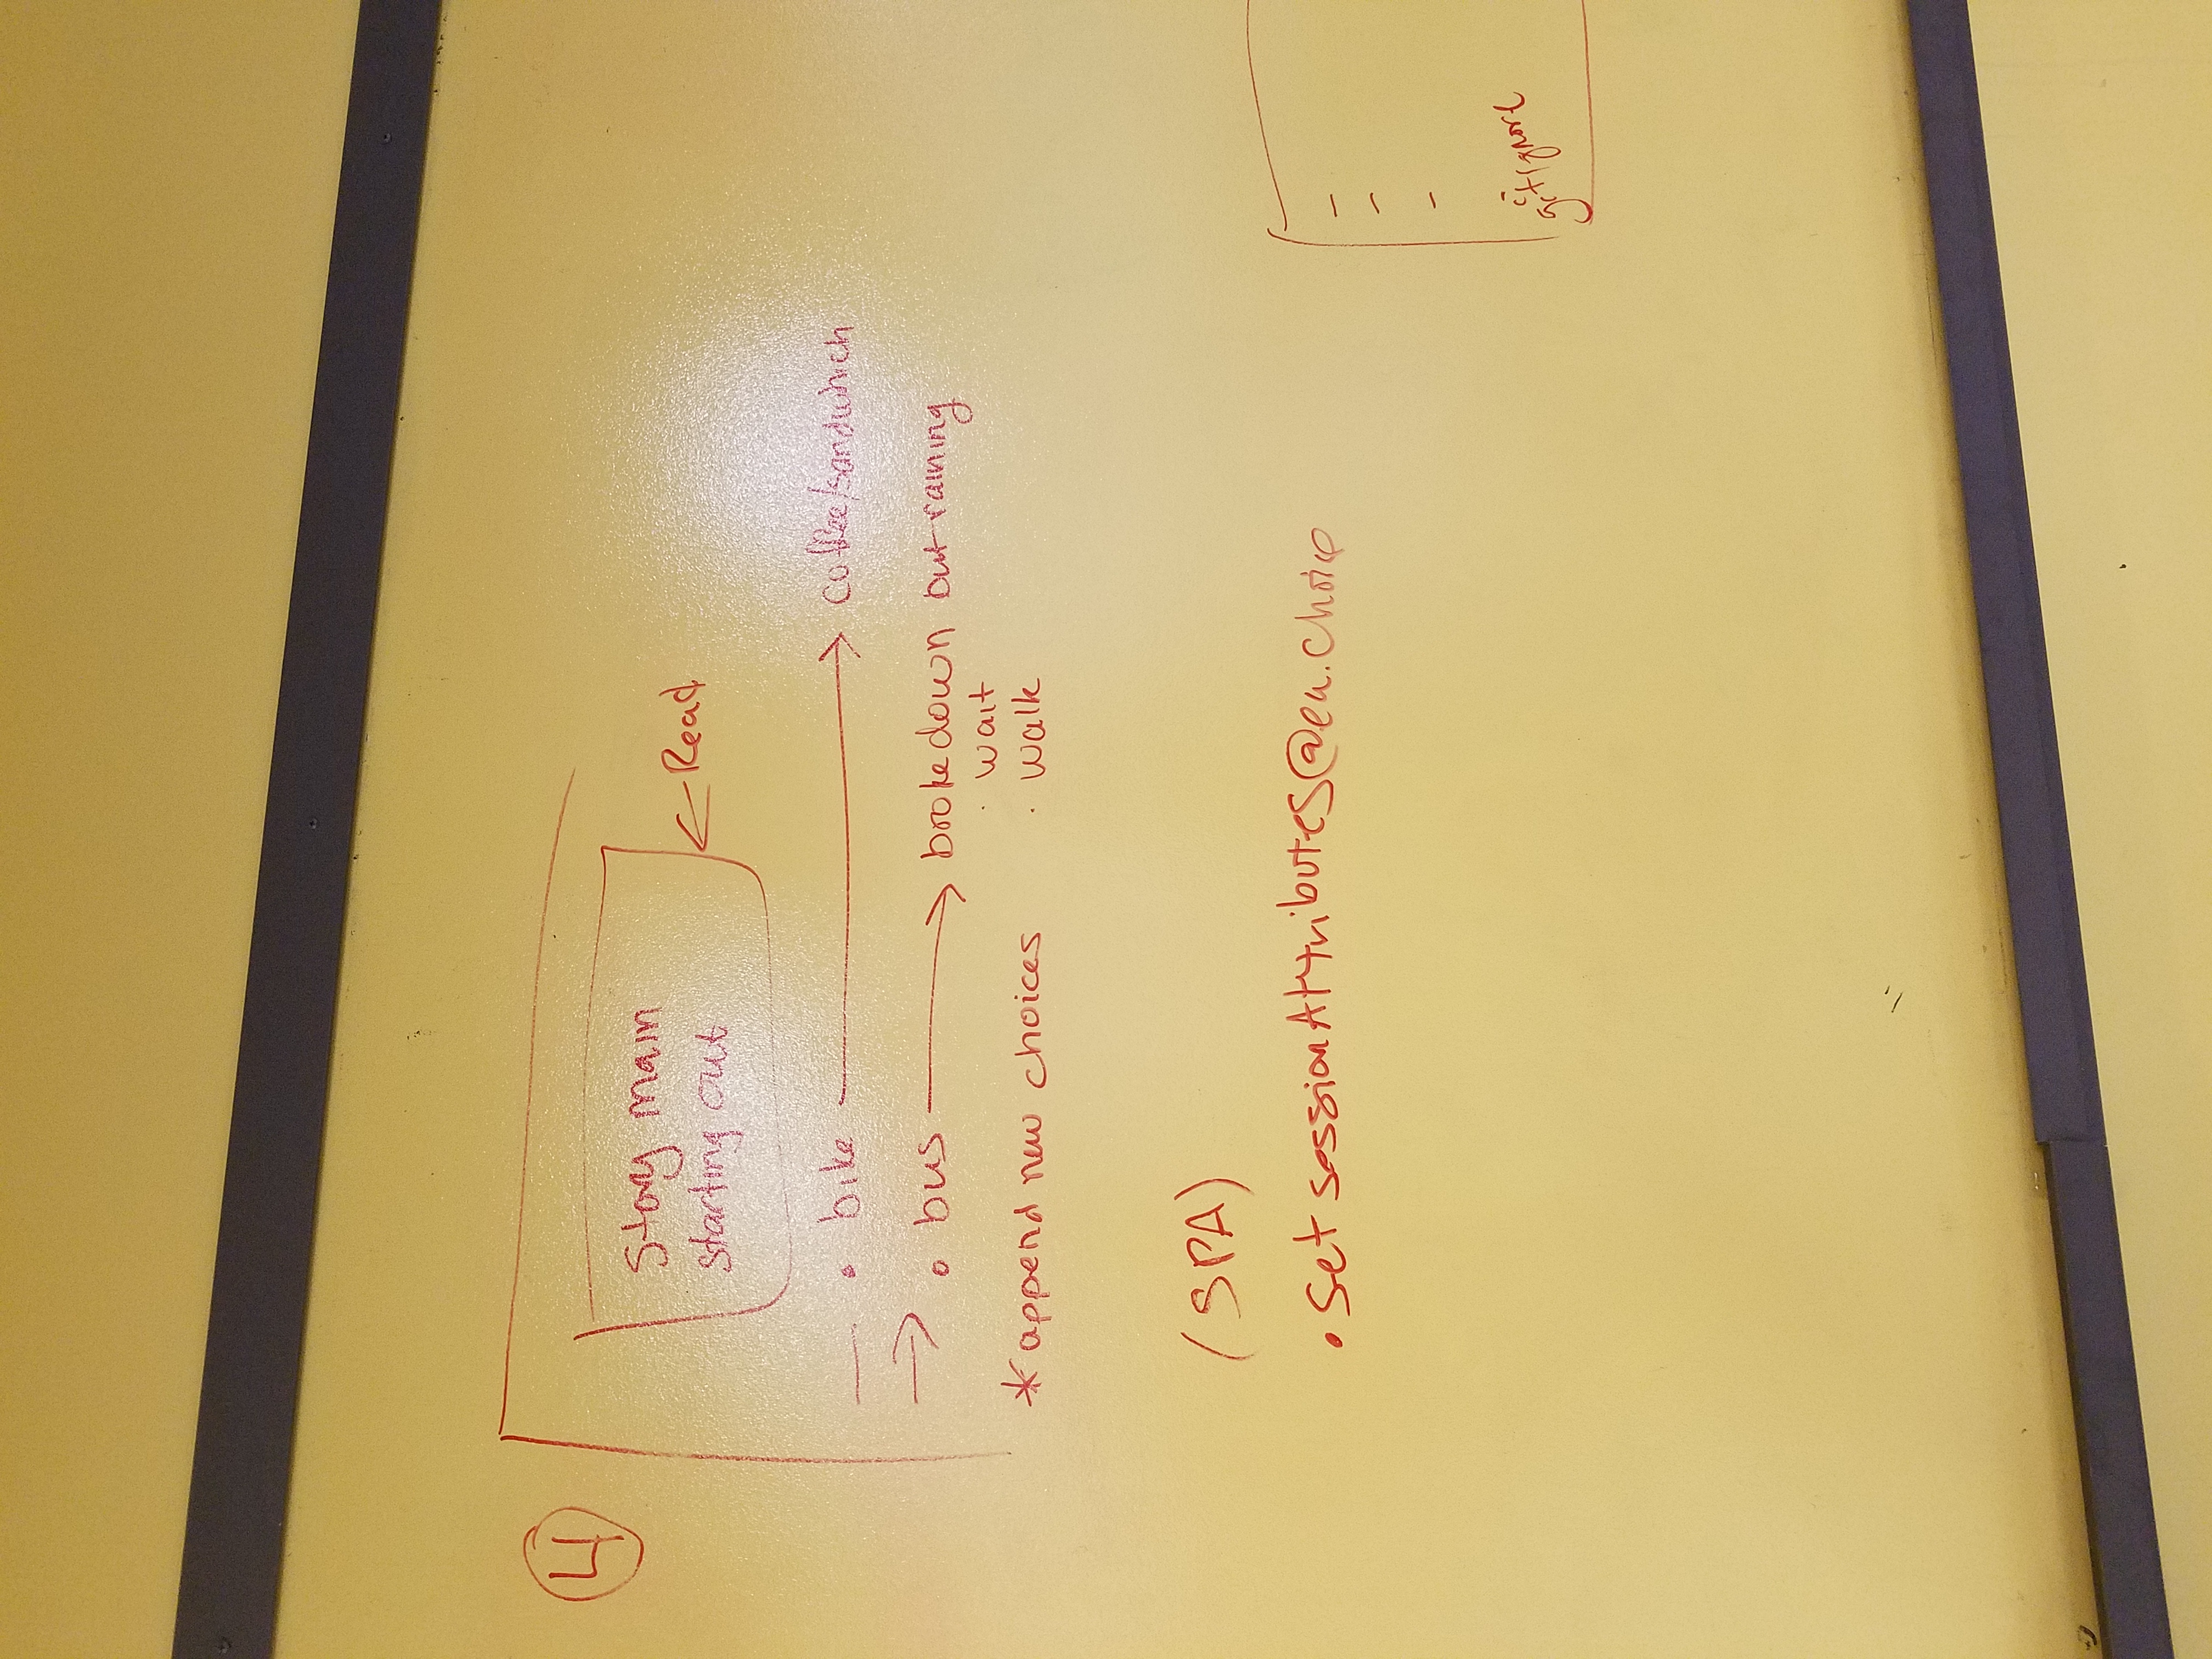 4
Story main
starting out
← Read
• bike → coffee/sandwhich
→ • bus → broke down but raining
· wait
· walk
* append new choices
(SPA)
• Set sessionAttributes @ ea. choice
–
–
–
gitignore